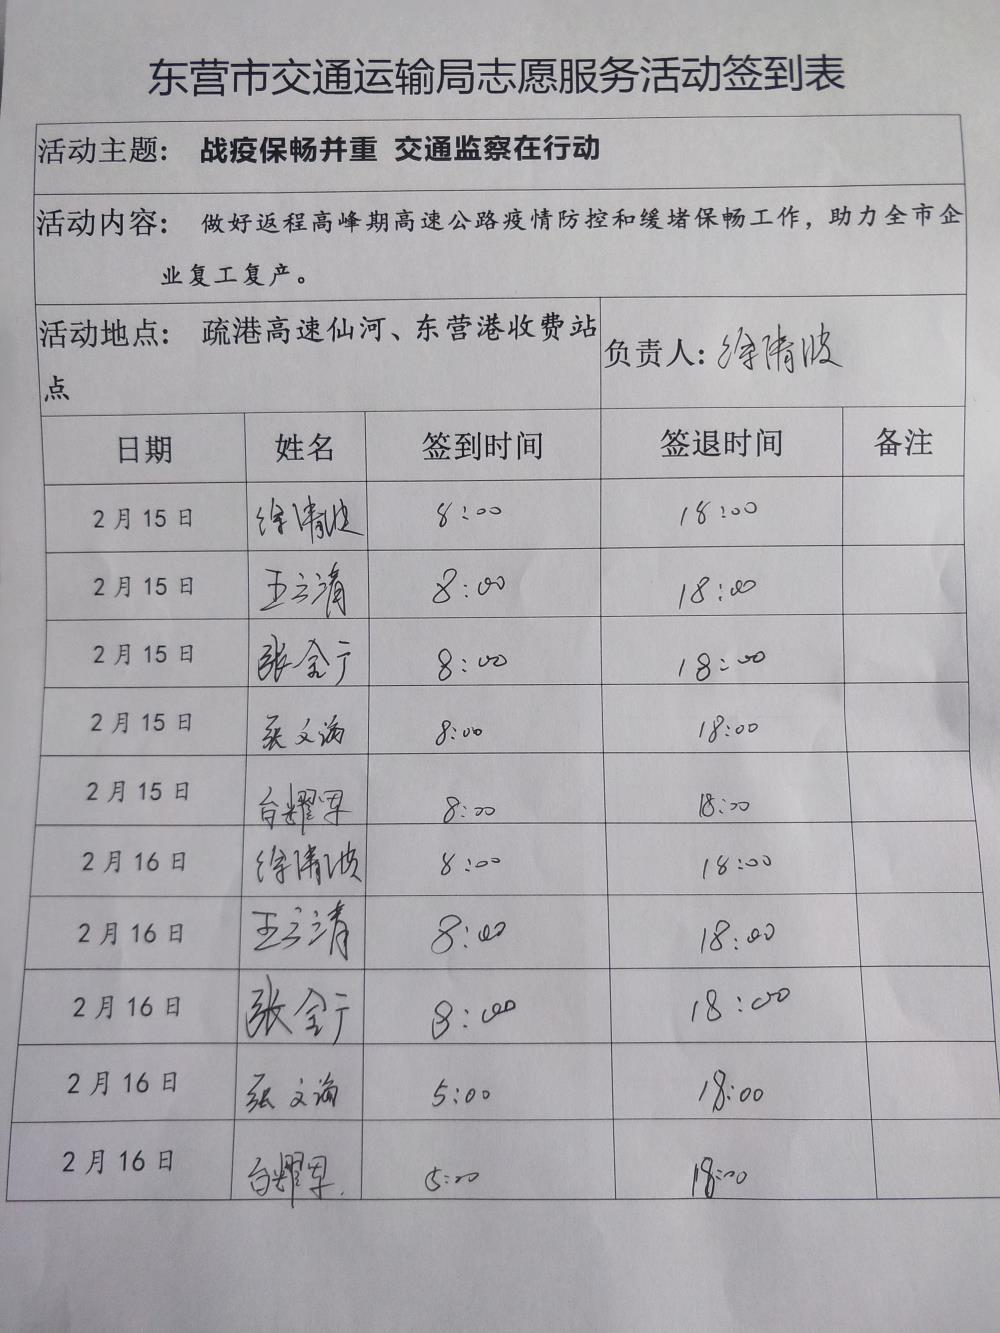 东营市交通运输局志愿服务活动签到表
活动主题： 战疫保畅并重 交通监察在行动
活动内容： 做好返程高峰期高速公路疫情防控和缓堵保畅工作，助力全市企
业复工复产。
活动地点： 疏港高速仙河、东营港收费站
点
负责人：徐清波
日期 姓名 签到时间 签退时间 备注
2月15日 徐清波 8:00 18:00
2月15日 王立清 8:00 18:00
2月15日 张金广 8:00 18:00
2月15日 张文 8:00 18:00
2月15日 8:00 18:00
2月16日 徐清波 8:00 18:00
2月16日 王立清 8:00 18:00
2月16日 张金广 8:00 18:00
2月16日 张文 5:00 18:00
2月16日 5:00 18:00